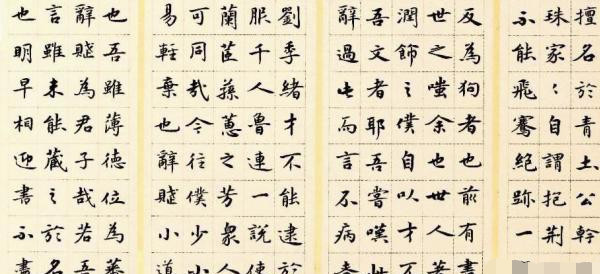 擅名於青土公幹
珠家〻自謂抱荊
不能飛騫絕跡一
反為狗者也前有書
世之嗤余也世人著
潤飾之僕自以才不
吾文者耶吾嘗嘆
辭過此而言不病
劉季緒才不能逮於
千人魯連一說使
蘭茝蓀蕙之芳衆人
可同哉今往僕少小
易輕棄也辭賦小道
也吾雖薄德位為蕃
辭賦為君子哉若吾
言雖未能藏之於名
也明早相迎書不